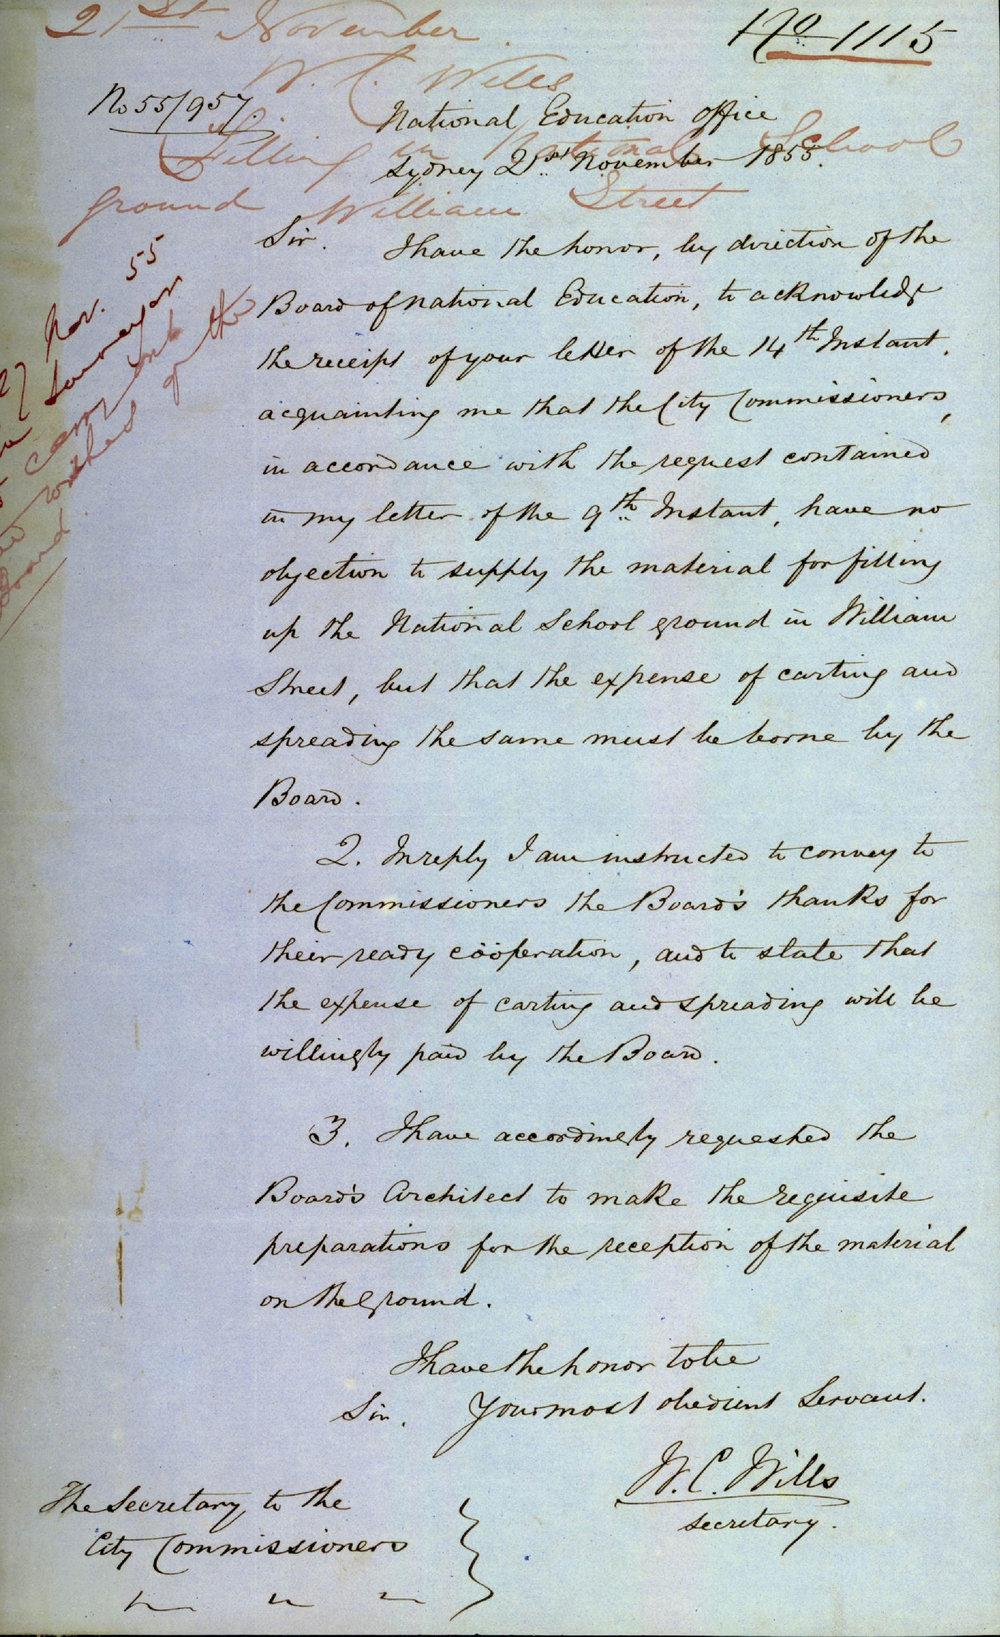 21st November
No 1115
W. C. Wills
No 55/957.
National Education Office
Filling in National School
Sydney 21st November 1855.
ground William Street
Sir.
I have the honor, by direction of the
Board of National Education, to acknowledge
the receipt of your letter of the 14th Instant,
acquainting me that the City Commissioners,
in accordance with the request contained
in my letter of the 9th Instant, have no
objection to supply the material for filling
up the National School ground in William
Street, but that the expense of carting and
spreading the same must be borne by the
Board.
2. In reply I am instructed to convey to
the Commissioners the Board's thanks for
their ready cööperation, and to state that
the expense of carting and spreading will be
willingly paid by the Board.
3. I have accordingly requested the
Board's Architect to make the requisite
preparations for the reception of the material
on the Ground.
I have the honor to be
Sir. Your most obedient Servant.
W. C. Wills
Secretary.
The Secretary to the
City Commissioners
27 Nov. 55
Surveyor
carry out
wishes of the
Board